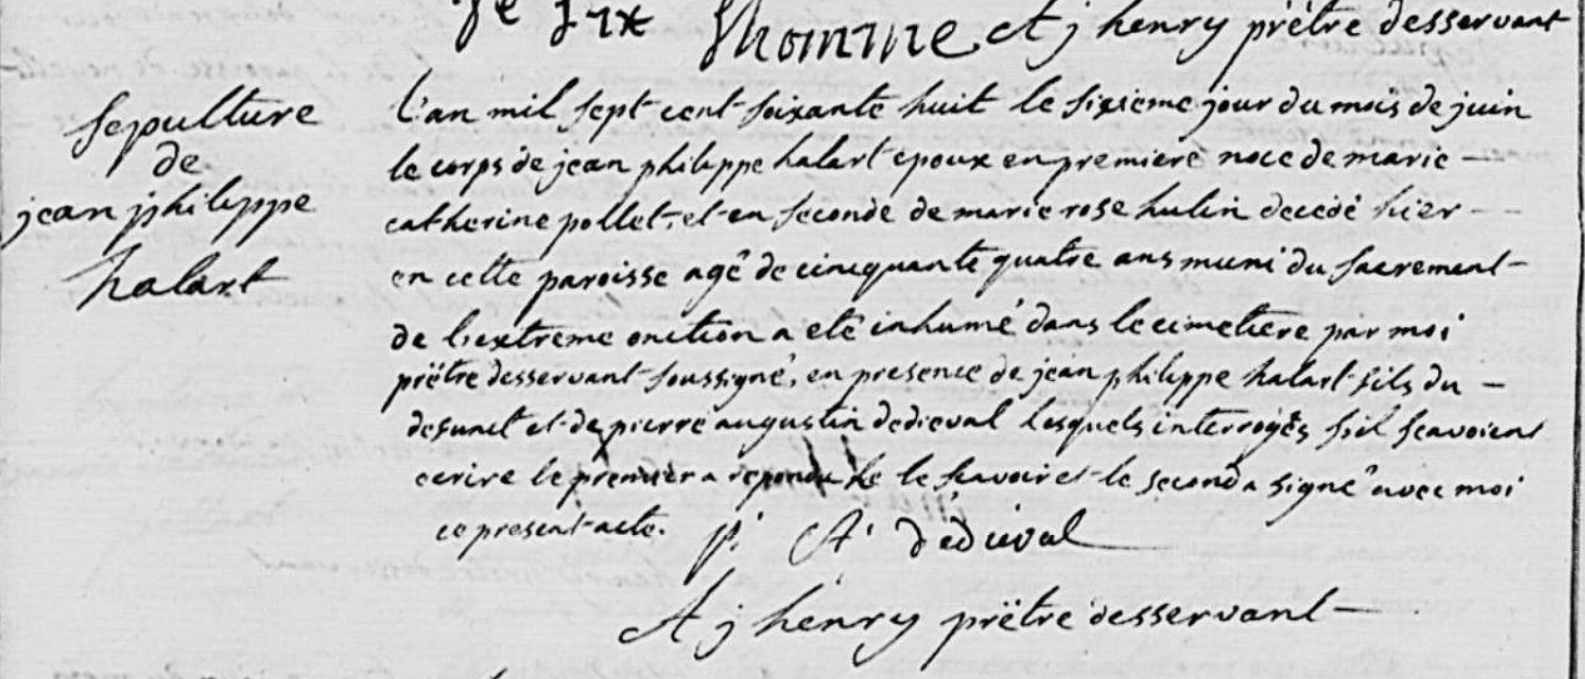 Lhomme A j henry prêtre desservant
sepulture
de
jean philippe
halart
L'an mil sept cent soixante huit le sixieme jour du mois de juin
le corps de jean philippe halart epoux en premiere noce de marie -
catherine pollet, et en seconde de marie rose hulin decedé hier --
en cette paroisse agê de cincquante quatre ans muni du sacrement -
de l'extreme onction a eté inhumé dans le cimetiere par moi
prëtre desservant soussigné, en presence de jean philippe halart fils du -
defunct et de pierre augustin dedieval lesquels interrogés s'il sçavoient
ecrire le premier a repondu ne le scavoir et le second a signé avec moi
ce present acte. p. A. dedieval
A j henry prëtre desservant